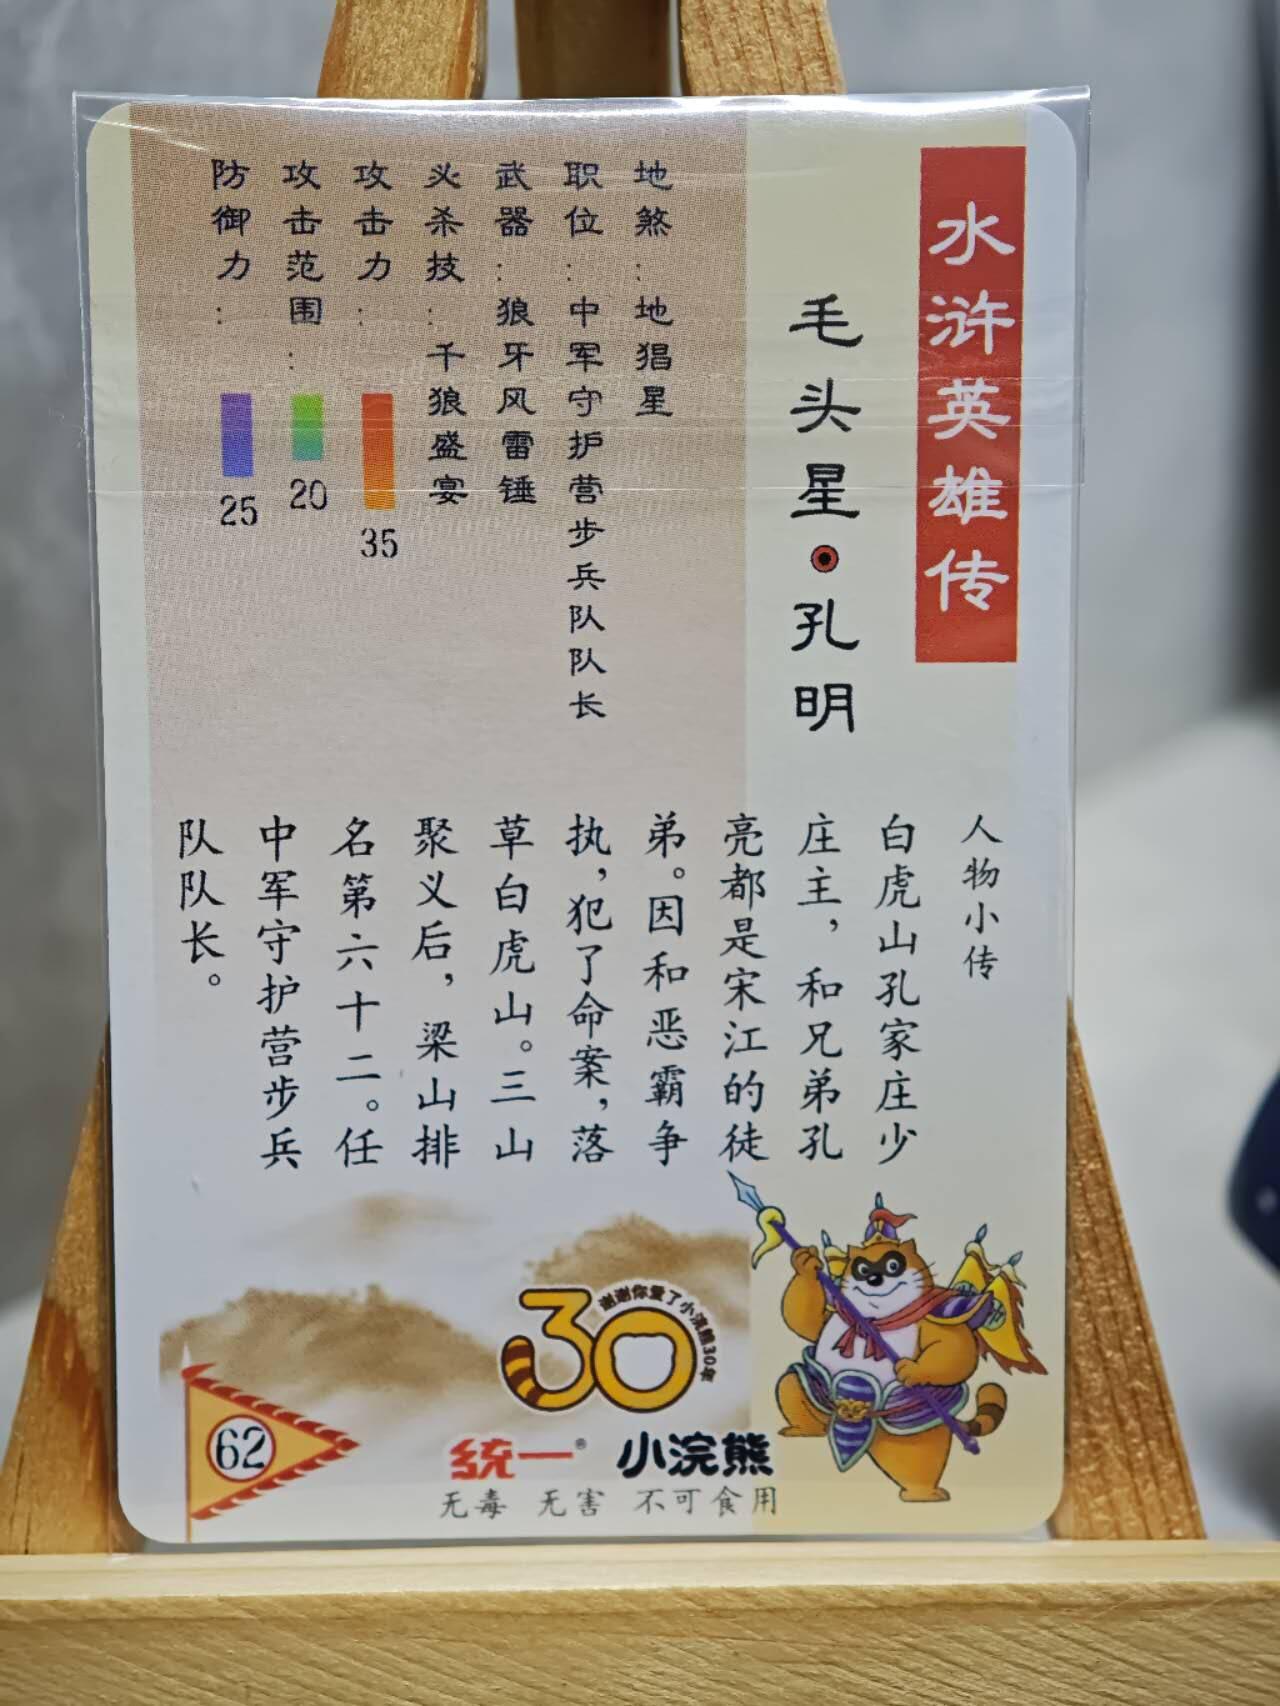 水浒英雄传
毛头星·孔明
地煞：地猖星
职位：中军守护营步兵队队长
武器：狼牙风雷锤
必杀技：千狼盛宴
攻击力：35
攻击范围：20
防御力：25
人物小传
白虎山孔家庄少
庄主，和兄弟孔
亮都是宋江的徒
弟。因和恶霸争
执，犯了命案，落
草白虎山。三山
聚义后，梁山排
名第六十二。任
中军守护营步兵
队队长。
30
谢谢你爱了小浣熊30年
62
统一® 小浣熊
无毒 无害 不可食用